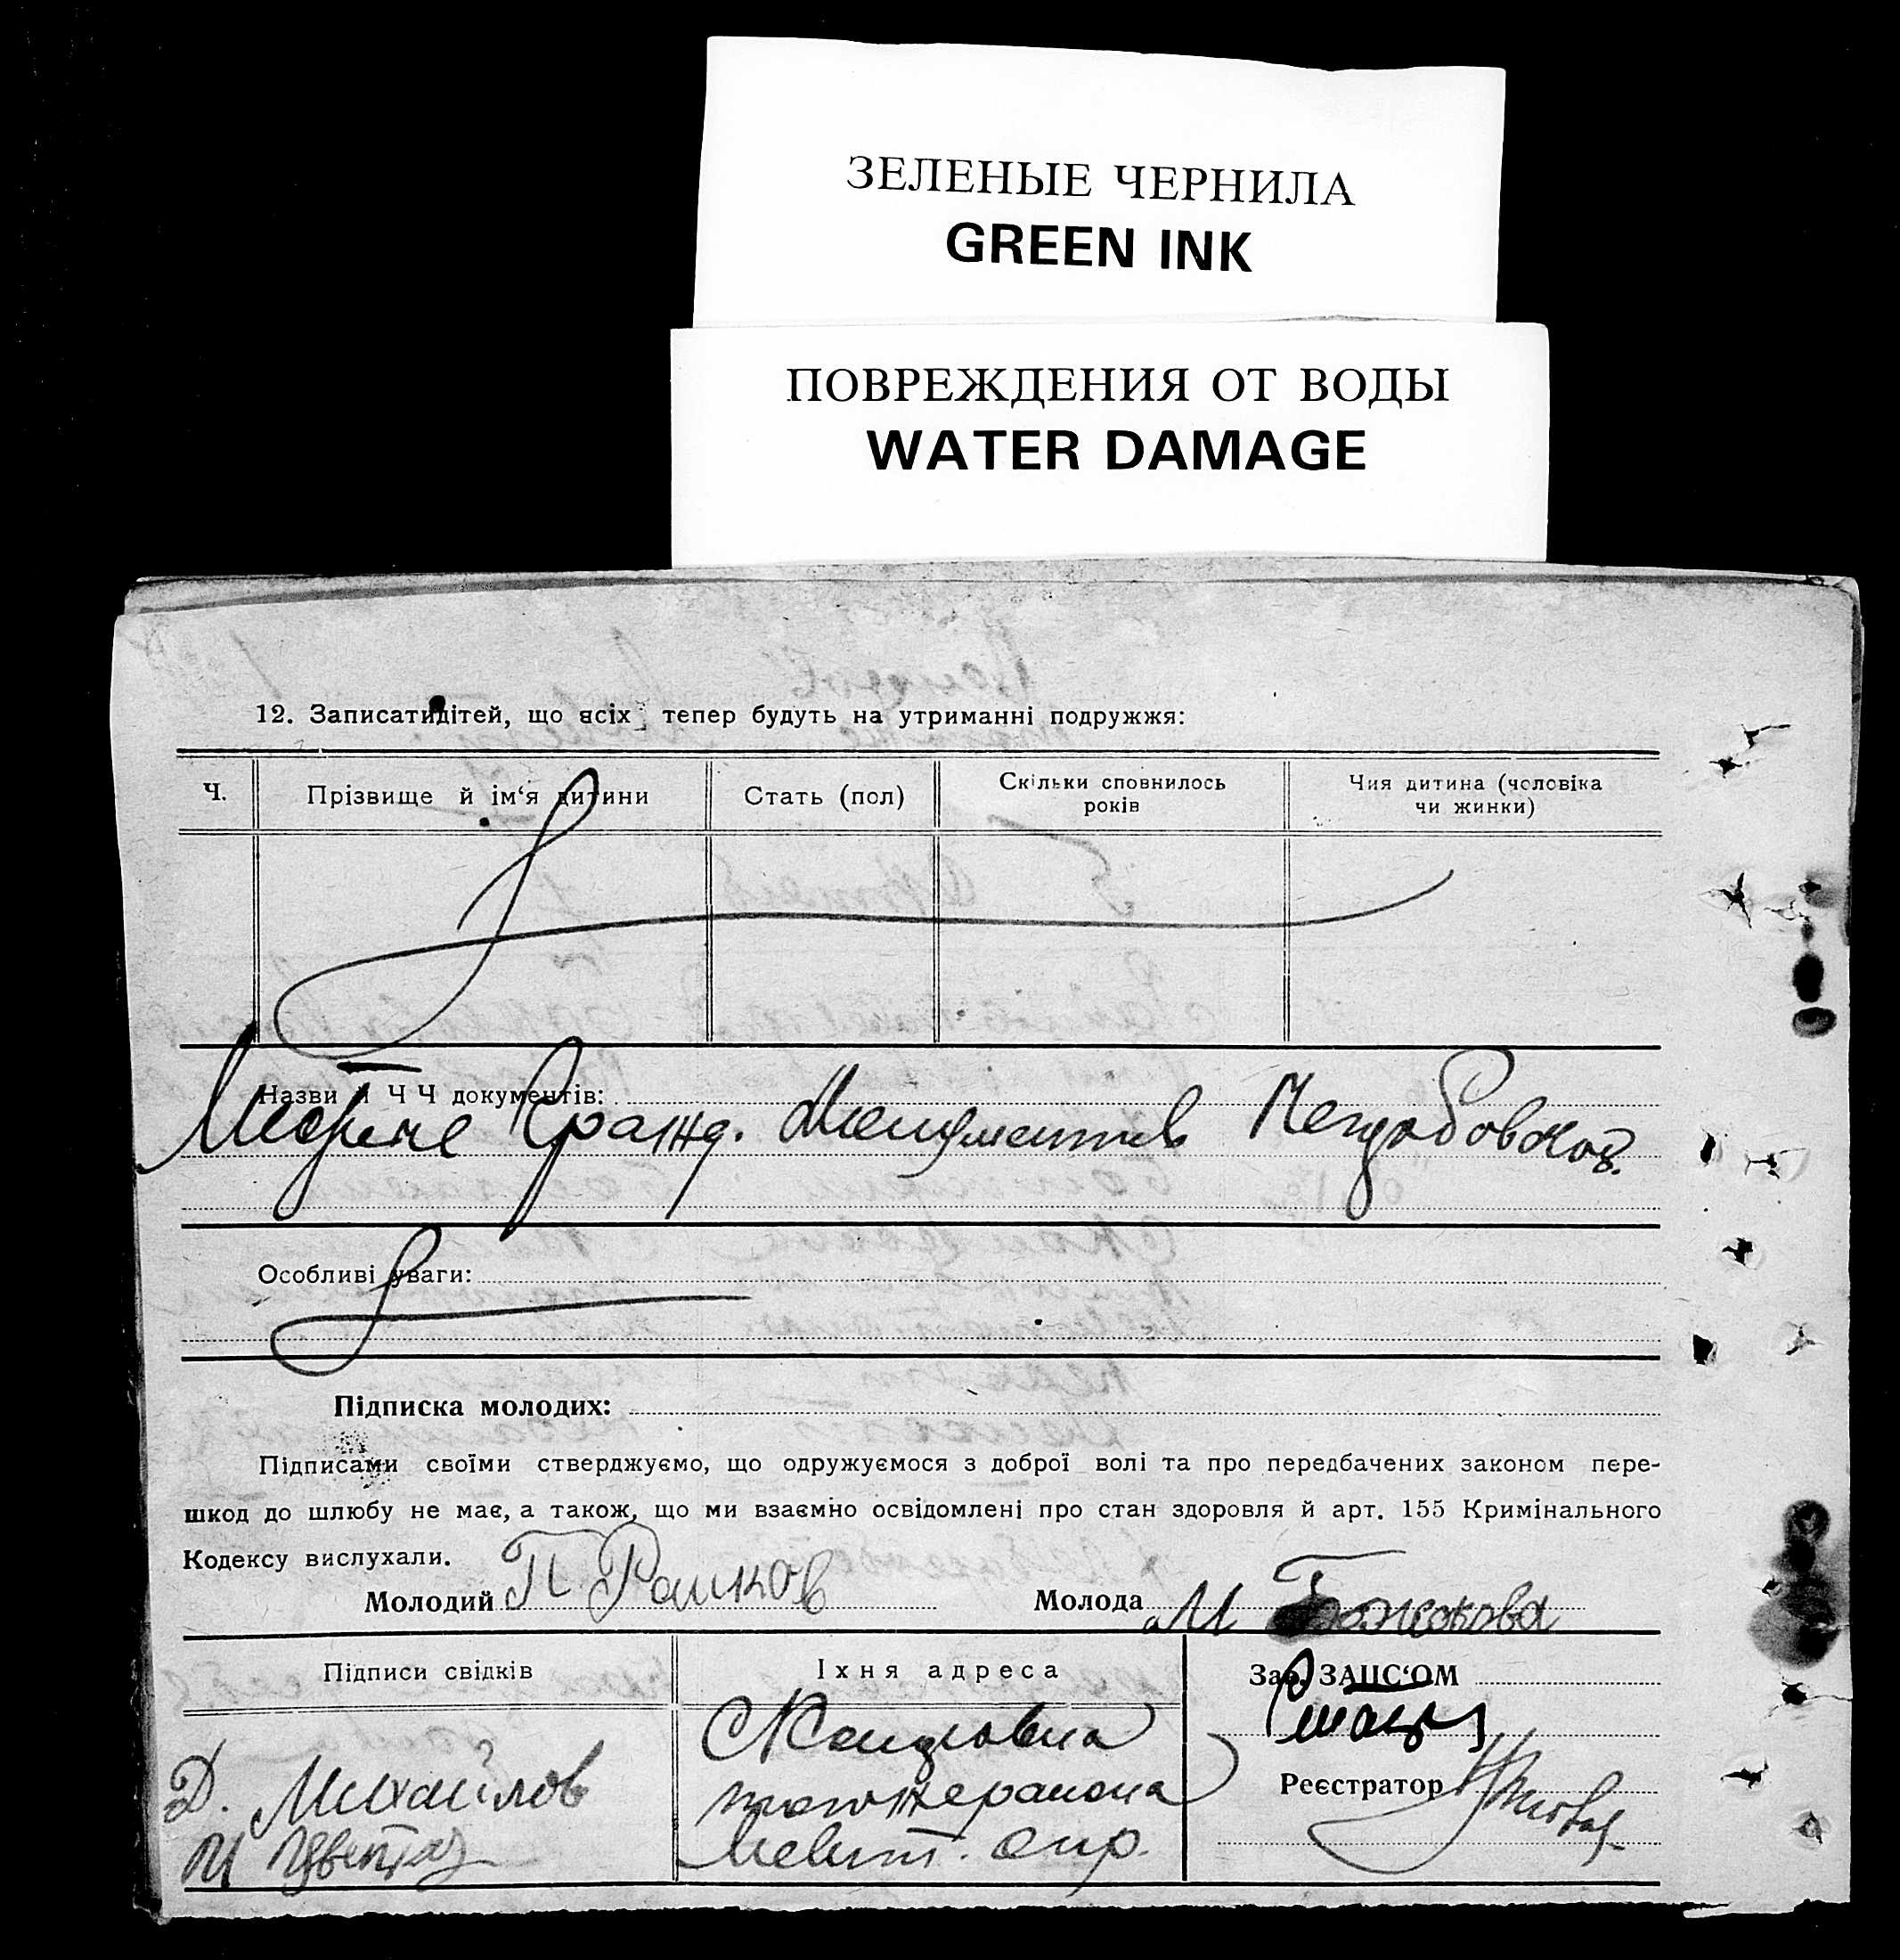 ЗЕЛЕНЫЕ ЧЕРНИЛА
GREEN INK
ПОВРЕЖДЕНИЯ ОТ ВОДЫ
WATER DAMAGE
12. Записати дітей, що всіх тепер будуть на утриманні подружжя:
Ч.
Прізвище й ім‘я дитини
Стать (пол)
Скільки сповнилось
років
Чия дитина (чоловіка
чи жинки)
Назви й Ч Ч документів:
Особливі уваги:
Підписка молодих:
Підписами своїми стверджуємо, що одружуємося з доброї волі та про передбачених законом пере-
шкод до шлюбу не має, а також, що ми взаємно освідомлені про стан здоровля й арт. 155 Кримінального
Кодексу вислухали.
Молодий П Райков Молода М Божокова
Підписи свідків
Їхня адреса
Зав. ЗАПС‘ОМ
Д. Михайлов
Реєстратор